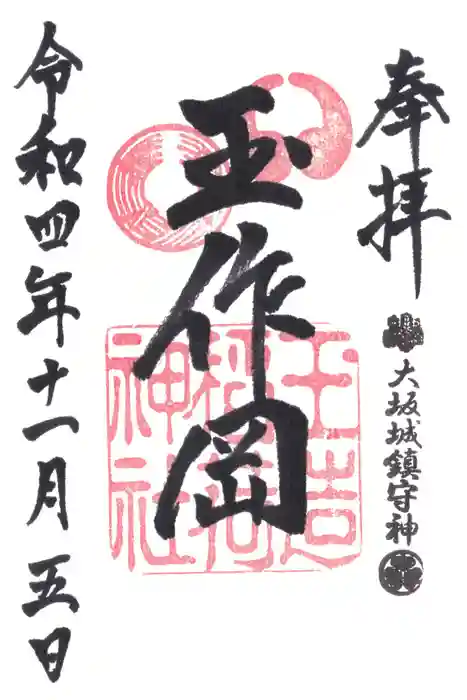 奉拝
大坂城鎮守神
玉作岡
玉造稲荷神社
令和四年十一月五日